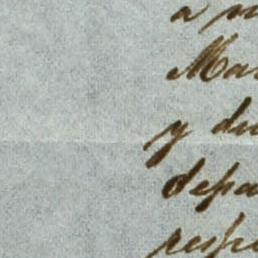 a
Mar
y du
depa
respe